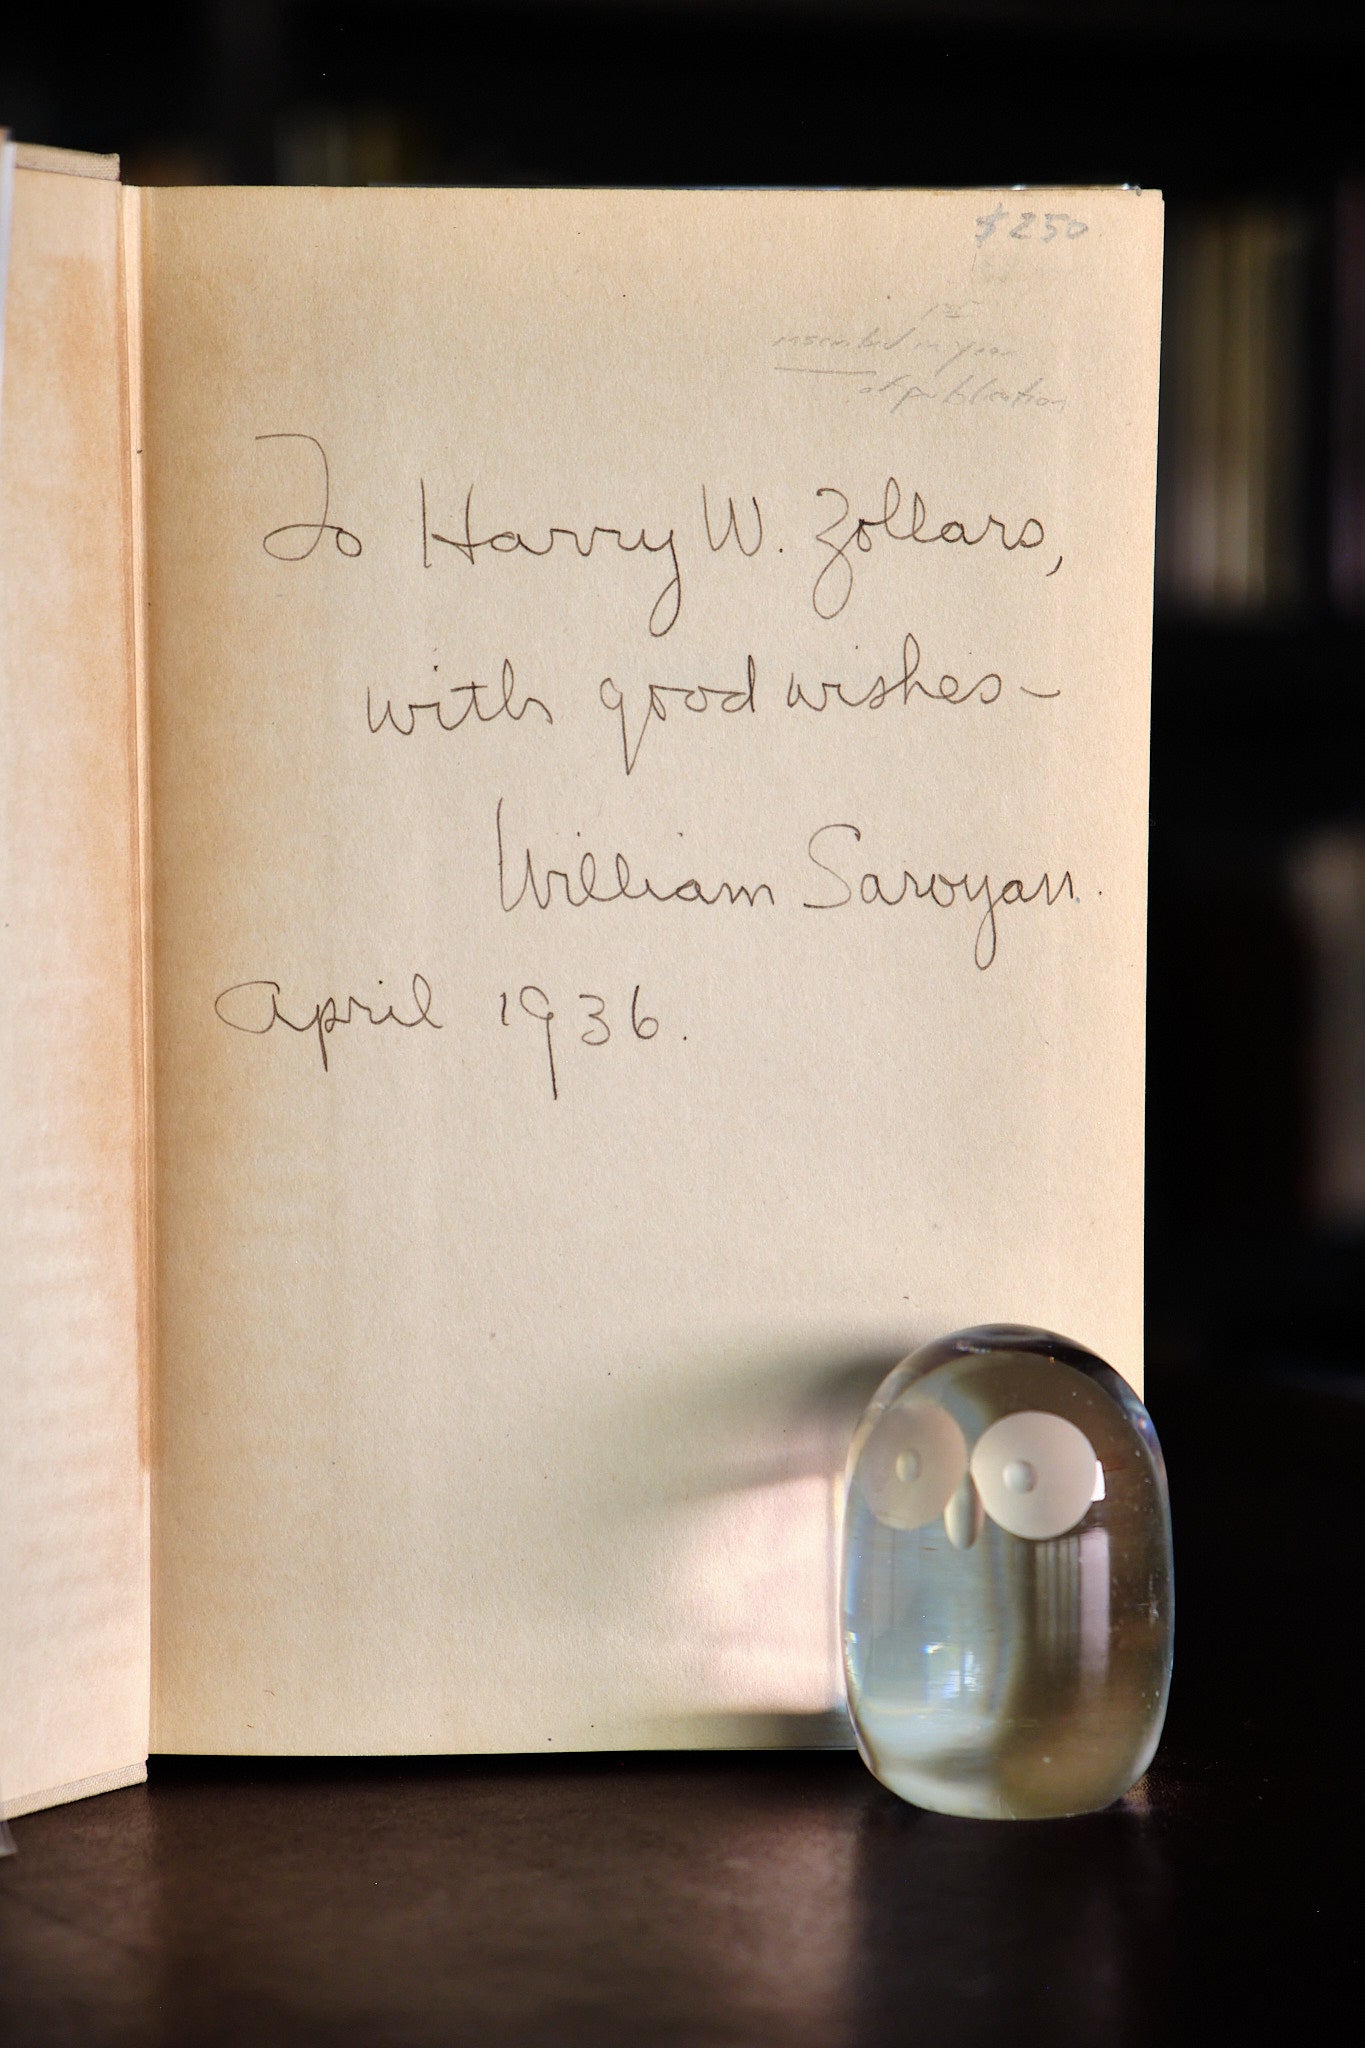 $250
1st
inscribed in year
of publication
To Harry W. Zollars,
with good wishes –
William Saroyan.
April 1936.